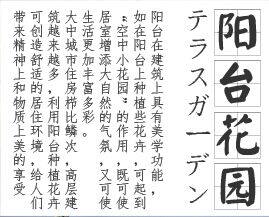 阳台花园
テラスガーデン
阳台在建筑上具有美学功能，
如在阳台上种植些花卉，可起到
“空中小花园”的作用，既可使
居室增添大自然的气氛，又可使
生活更加丰富多彩。
大中城市住房栉比鳞次，高层建
筑越来越多，利用阳台种植花卉
可创造舒适的居住环境，给人们
带来精神上和物质上美的享受